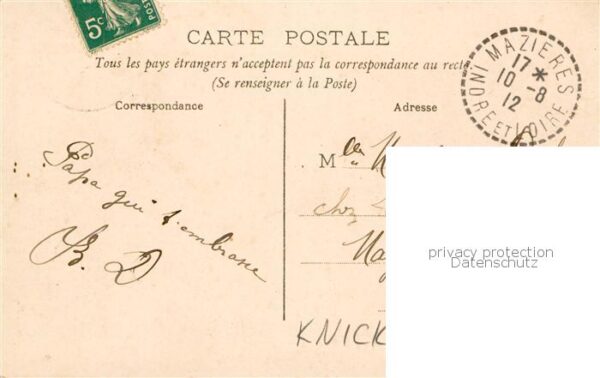 5c
POSTES
CARTE POSTALE
Tous les pays étrangers n'acceptent pas la correspondance au recto
(Se renseigner à la Poste)
MAZIERES
INDRE ET LOIRE
17 *
10 -8
12
Correspondance
Adresse
Papa qui t'embrasse
B. D
M lle
chez
KNICK
privacy protection
Datenschutz